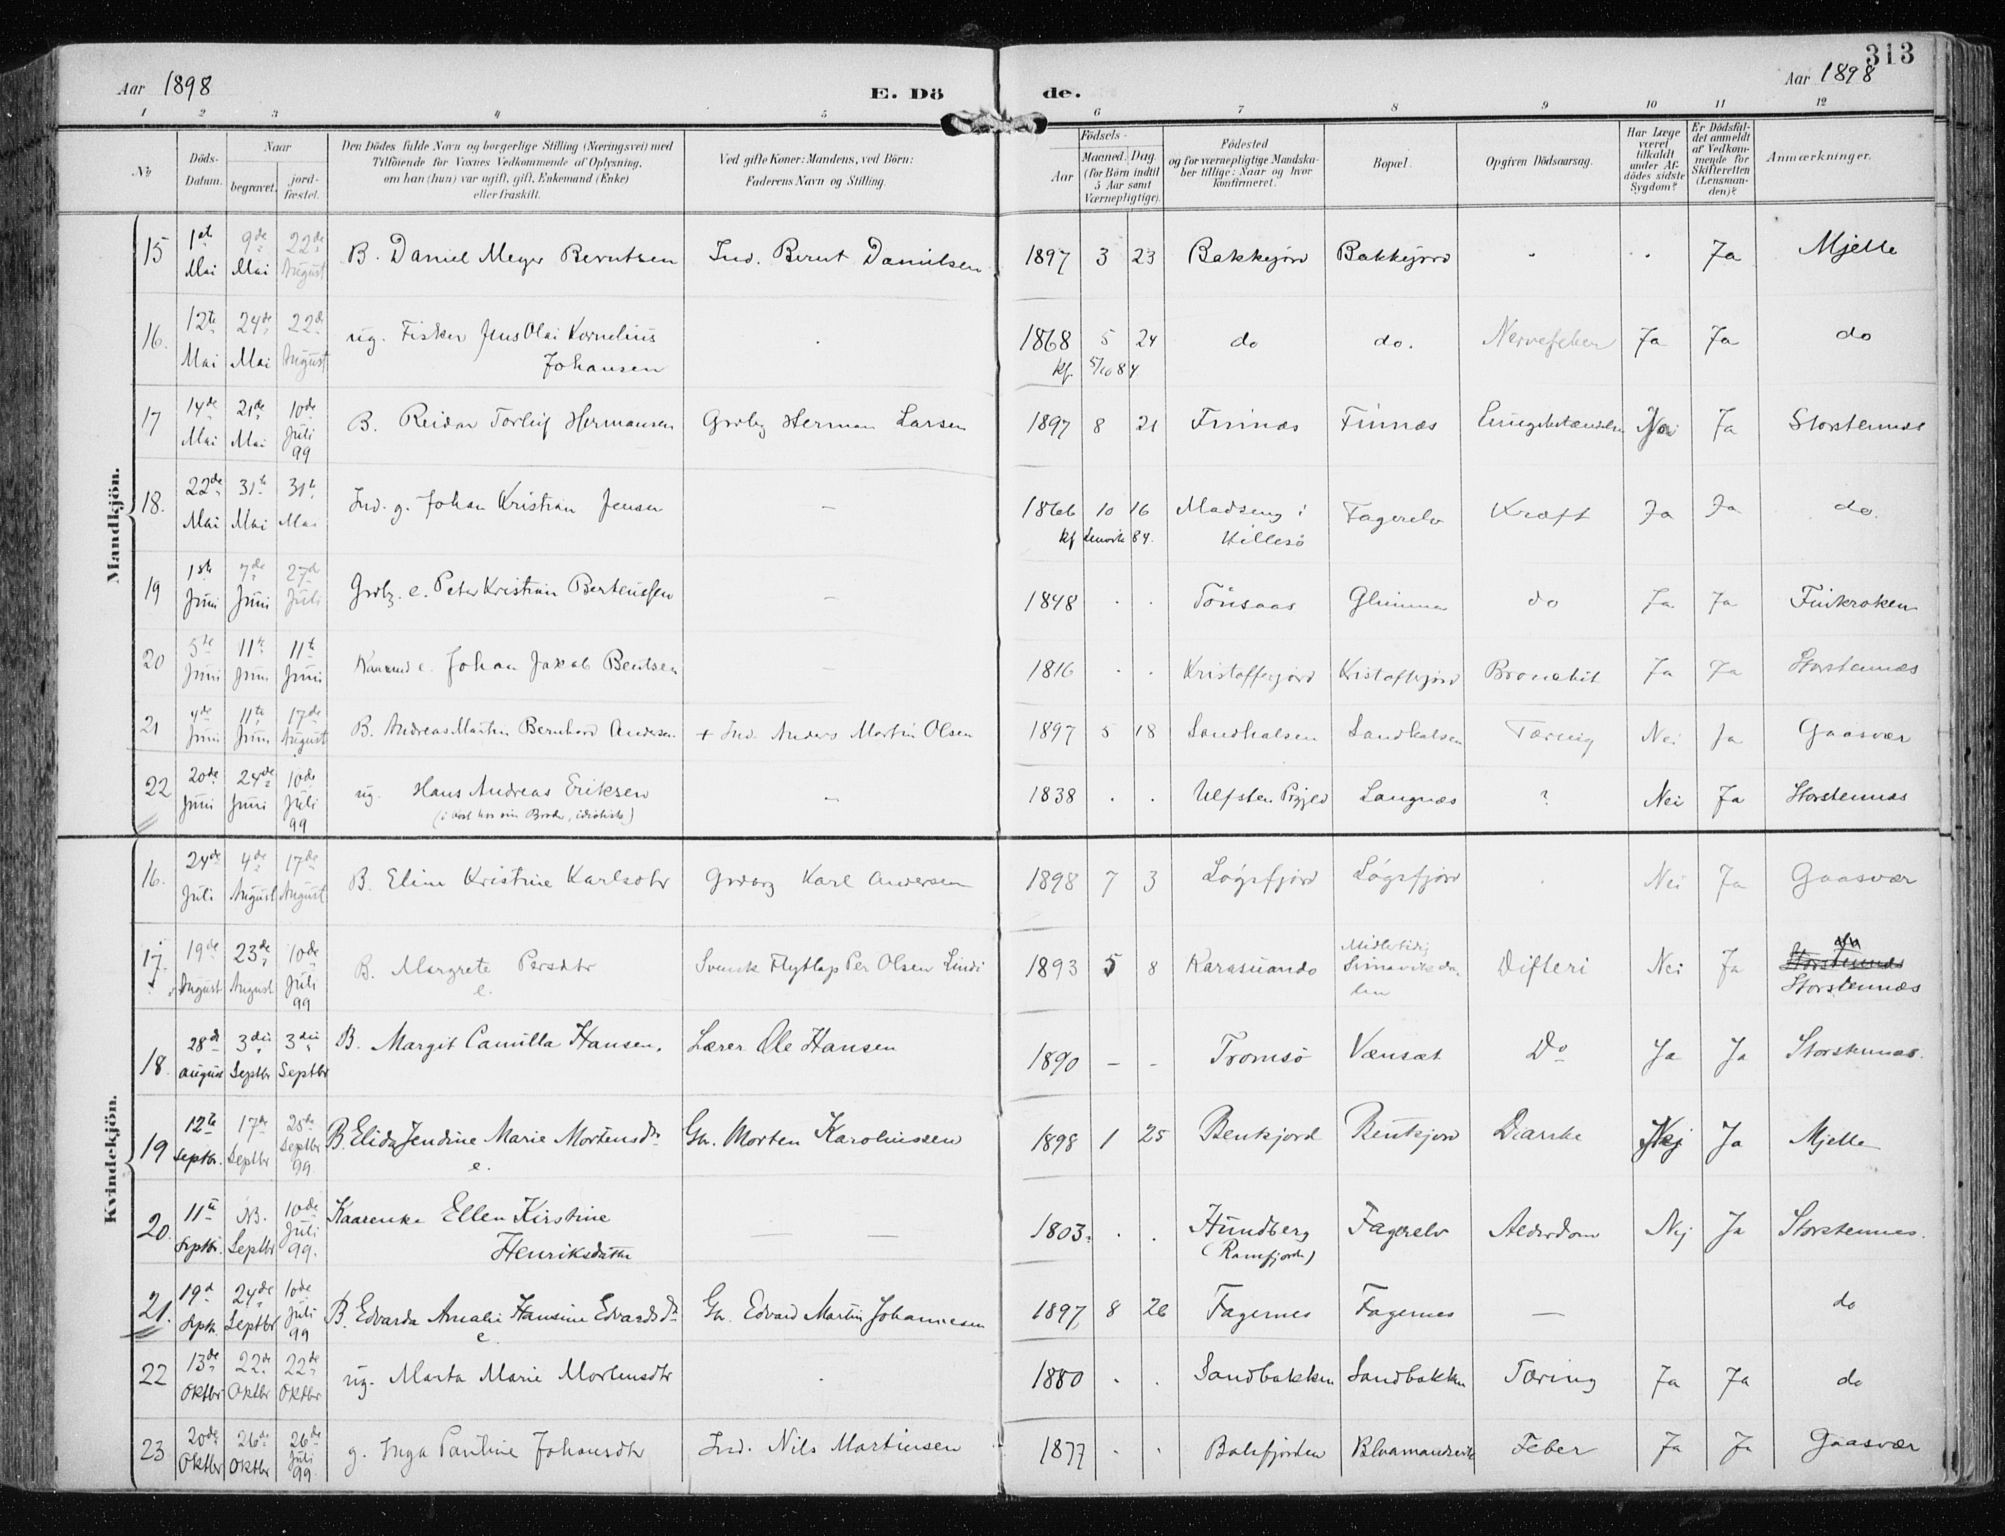 313
Aar 1898
E. Dö
de.
Aar 1898
1 2 3 4 5 6 7 8 9 10 11 12
No
Döds-
Datum.
Naar
begravet.
jord-
fæstet.
Den Dödes fulde Navn og borgerlige Stilling (Næringsvei) med
Tilföiende for Voxnes Vedkommende af Oplysning,
om han (hun) var ugift, gift, Enkemand (Enke)
eller fraskilt.
Ved gifte Koner: Mandens, ved Börn:
Faderens Navn og Stilling.
Födsels-
Aar
Maaned. Dag.
(for Börn indtil
5 Aar samt
Værnepligtige).
Födested
og for værnepligtige Mandska-
ber tillige: Naar og hvor
konfirmeret.
Bopæl.
Opgiven Dödsaarsag.
Har Læge
været
tilkaldt
under Af-
dödes sidste
Sygdom?
Er Dödsfal-
det anmeldt
af Vedkom-
mende for
Skifteretten
(Lensman-
den)?
Anmærkninger.
Mandkjön.
15 1st Mai 9de Mai 22de August B. Daniel Meyer Berntsen Ind. Bernt Danielsen 1897 3 23 Bakkejord Bakkejord . . Ja Mjelle
16. 12te Mai 24de Mai 22de August ug. Fisker Jens Olai Kornelius
Johansen . 1868 5 24 do do. Nervefeber Ja Ja do
kf 5/10 84
17 14de Mai 21de Mai 10de Juli 99 B. Reidar Torleif Hermansen Grdbg Herman Larsen 1897 8 21 Finnæs Finnæs Nei Ja Storstennæs
18. 22de Mai 31te Mai 31te Mai Ind. g. Johan Kristian Jensen - 1866 10 16 Madseng i
Hillesö Fagerelv Kræft Ja Ja do.
kf Lenvik 84.
19 1ste Juni 7de Juni 27de Juli Grdbg. e. Peter Kristian Berteussen - 1848 . . Tönsaas Glimma do Ja Ja Finkroken
20 5te Juni 11te Juni 11te Juni Kaarmd e. Johan Jakob Bentsen - 1816 . . Kristoffejord Kristoffejord Bronchit Ja Ja Storstennæs
21 4de Juni 11te Juni 17de August B. Andreas Martin Bernhard Andersen + Ind. Anders Martin Olsen 1897 5 18 Sandhalsen Sandhalsen Tæring Nei Ja Gaasvær
22 20de Juni 24de Juni 10de Juli 99 ug. Hans Andreas Eriksen
(i kost hos sin Broder, idiotisk) - 1838 . . Ulfsten Prgjeld Langnæs ? Nei Ja Storstennæs
Kvindekjön.
16. 24de Juli 4de August 17de August B. Eline Kristine Karlsdtr Grdbrg Karl Andersen 1898 7 3 Løgsfjord Løgsfjord . Nei Ja Gaasvær
17. 19de August 23de August 10de Juli 99 B. Margrete Persdtr
e. Svensk Flytlap Per Olsen Lindi 1893 5 8 Karasuando Midlertidig
Difteri Nei Ja Storstennæs
18. 28de August 3die Septbr 3die Septbr B. Margit Camilla Hansen. Lærer Ole Hansen 1890 - - Tromsö Vænsæt Do Ja Ja Storstennæs.
19 12te Septbr. 17de Septbr 25de Septbr 99 B. Elida Jendine Marie Mortensdtr
e. Gr. Morten Karolinssen 1898 1 25 Benkjord Benkjord Diarrhe Nej Ja Mjelle
20. 11te Septbr. NB. Septbr 10de Juli 99. Kaarenke Ellen Kirstine
Henriksdatter — — 1803. . . Hundberg
(Ramfjord) Fagerelv Alderdom Nej Ja Storstennes.
21. 19d Septb. 24de Septbr 10de Juli 99 B. Edvarda Amalie Hansine Edvardsdtr
e. Gr. Edvard Martin Johannesen 1897 8 26 Fagernes Fagernes — do
22 13de Oktbr 22de Oktbr 22de Oktbr ug. Marta Marie Mortensdtr . 1880 . . Sandbakken Sandbakken Tæring Ja Ja do
23 20de Oktbr 26de Oktbr 26de Juli 99 g. Inga Pauline Johansdtr Ind. Nils Martinsen 1877 . . Balsfjorden Blaamandsvik Feber Ja Ja Gaasvær